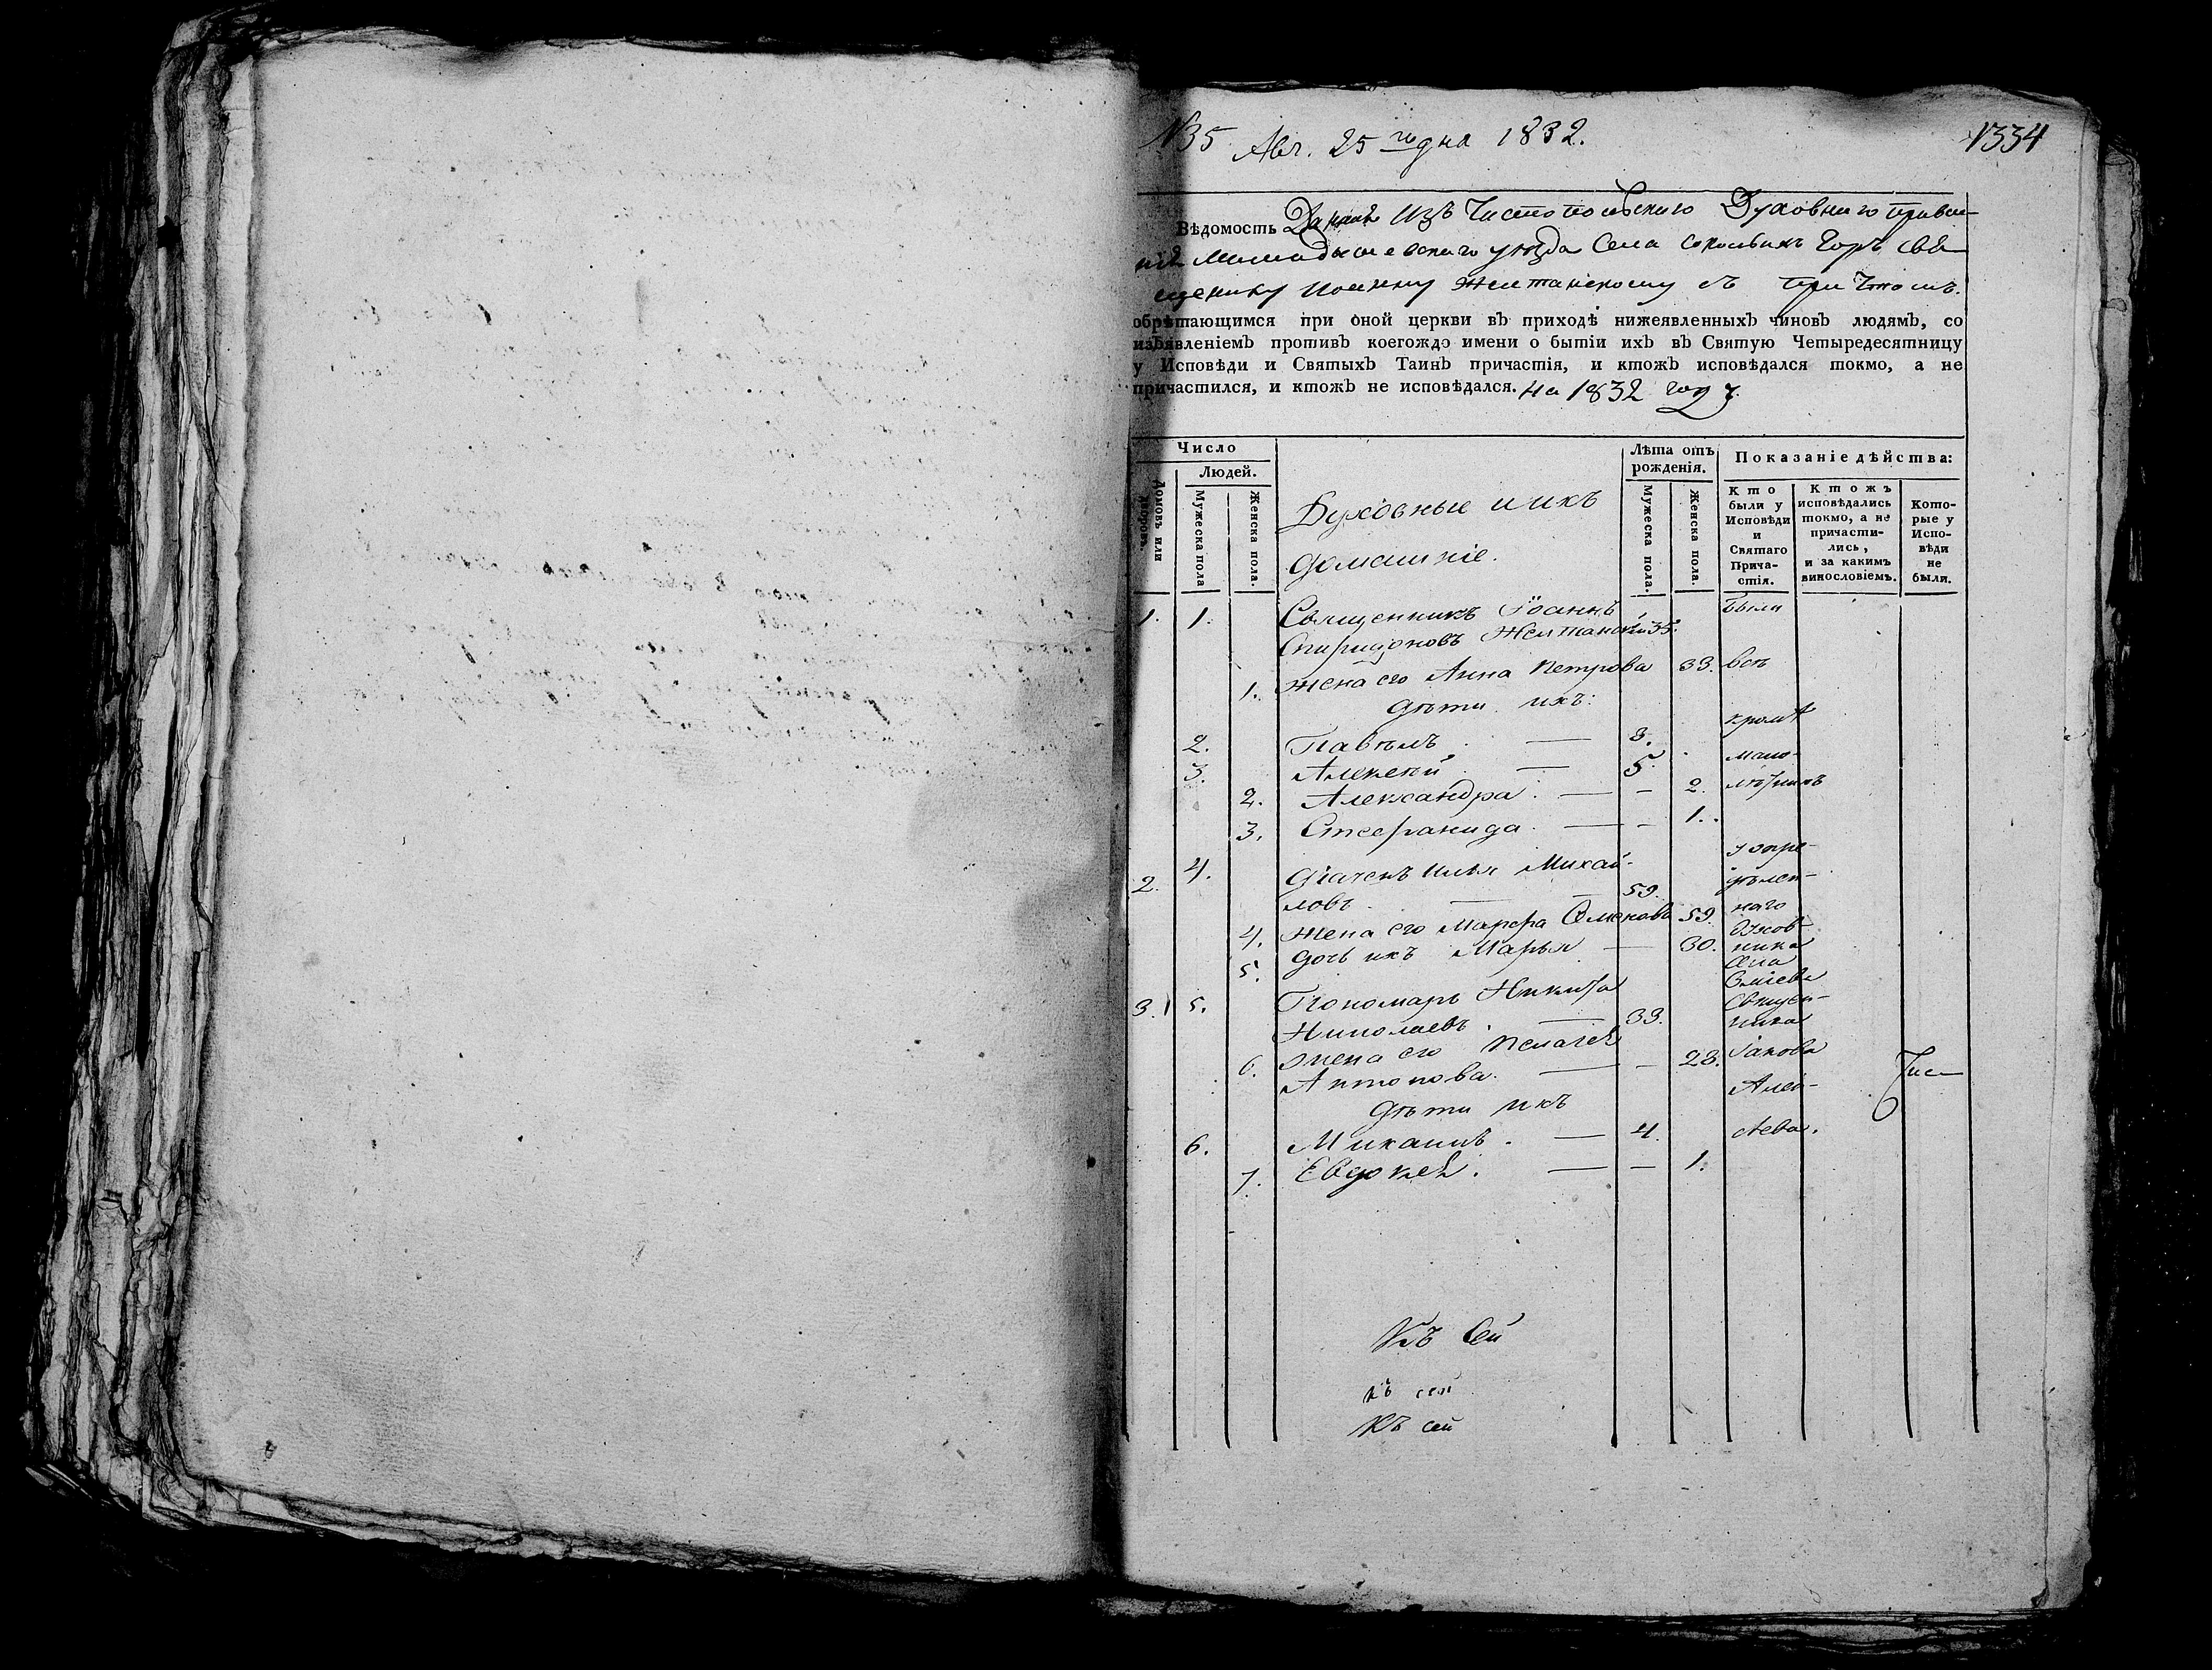 №35 Авг. 25 го дня 1832.
1334
Вѣдомость Данная Изъ Чистопольскаго Духовнаго правле-
нія Мамадышевскаго уѣзда Села Сокольихъ Горъ Свя-
щенику Иоанну Желтанскому съ причтомъ.
обрѣтающимся при оной церкви въ приходѣ нижеявленныхъ чиновъ людямъ, со
изъявленіемъ противъ коегождо имени о бытіи ихъ въ Святую Четыредесятницу
у Исповѣди и Святыхъ Таинъ причастія, и ктожъ исповѣдался токмо, а не
причастился, и ктожъ не исповѣдался. на 1832 годъ.
Число
Людей.
Домовъ или дворовъ.
Мужеска пола
Женска пола.
Духовные и ихъ
домашніе.
Лѣта отъ
рожденія.
Мужеска пола.
Женска пола.
Показаніе дѣйства:
Кто
были у
Исповѣди
и
Святаго
Прича-
стія.
Ктожъ
исповѣдались
токмо, а не
причасти-
лись,
и за какимъ
винословіемъ.
Кото-
рые у
Испо-
вѣди
не
были.
1. 1. Священникъ Іоаннъ были
Спиридоновъ Желтанскій 35.
1. Жена его Анна Петрова 33. всѣ
дѣти ихъ: кромѣ
2. Павелъ 8.
3. Алексѣй 5. мало-
2. Александра 2. лѣтнихъ
3. Стефанида 1.
2. 4. Дїачекъ Илья Михай- у опре-
ловъ 59. дѣлен-
4. Жена его Марфа Семенова 59. наго
5. дочь ихъ Марья 30. Духов
ника
села
3. 5. Пономарь Никита
Николаевъ. 33. Священ-
ника
6. Жена его Пелагея 28. Іакова
Антонова. Алек-
дѣти ихъ
6. Михаилъ. 4. сѣева.
7. Евдокея. 1.
Лис
Къ сей
къ сей
Къ сей